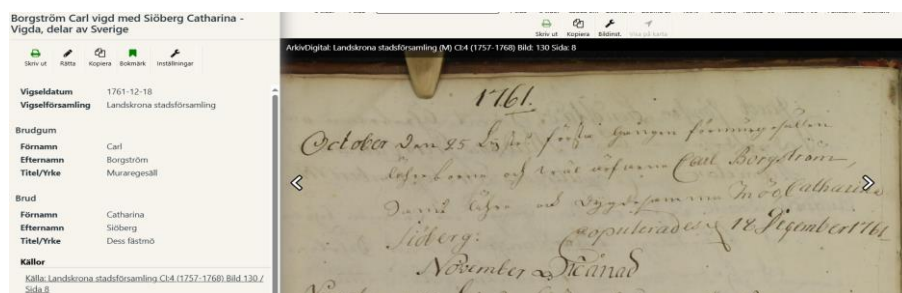 Borgström Carl vigd med Siöberg Catharina -
Vigda, delar av Sverige
Skriv ut Rätta Kopiera Bokmärk Inställningar
Vigseldatum 1761-12-18
Vigselförsamling Landskrona stadsförsamling
Brudgum
Förnamn Carl
Efternamn Borgström
Titel/Yrke Muraregesäll
Brud
Förnamn Catharina
Efternamn Siöberg
Titel/Yrke Dess fästmö
Källor
Källa: Landskrona stadsförsamling CI:4 (1757-1768) Bild 130 /
Sida 8
Skriv ut Kopiera Bildinst. Visa på karta
ArkivDigital: Landskrona stadsförsamling (M) CI:4 (1757-1768) Bild: 130 Sida: 8
1761.
October Den 25 Lystes första gången
och Carl Borgström,
Samt och Catharina
Siöberg. Copulerades d 18 December 1761
November